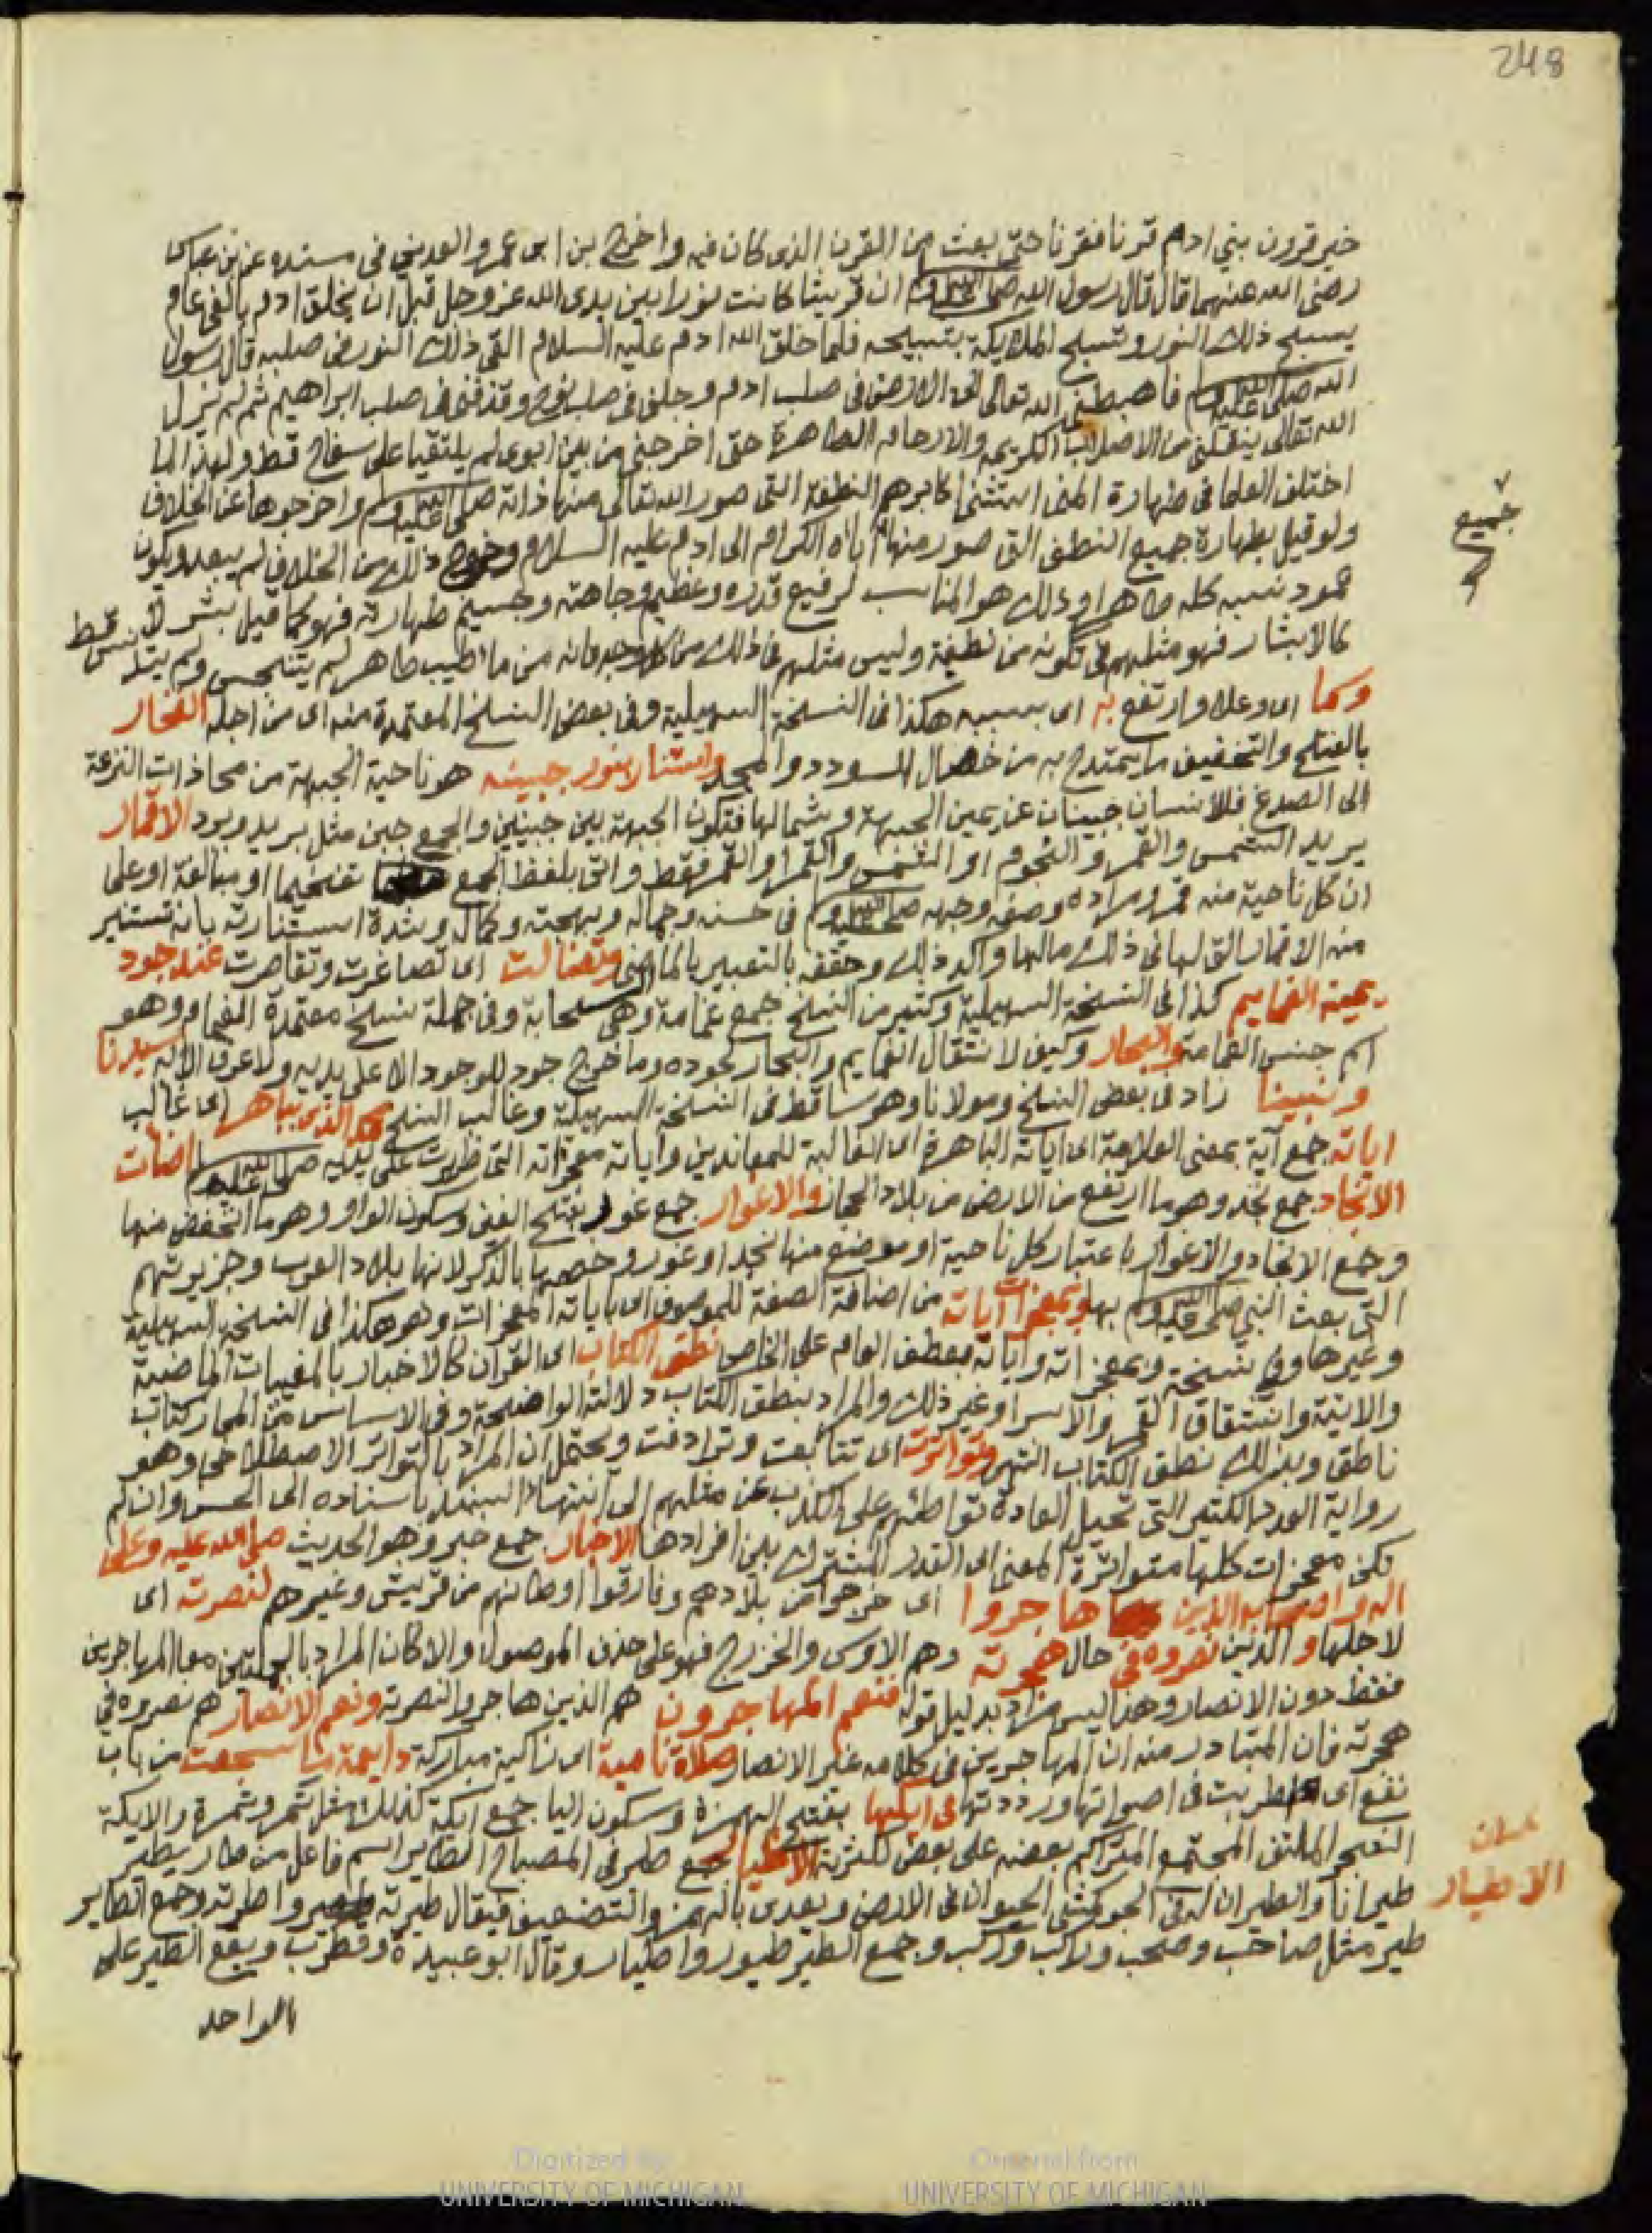 248
خير قرون بني ادم قرنا فقرنا حتى بعث من القرن الذى كان فيه واخرج بن ابى عمرو العدني فى مسنده عن بن عباس
رضى الله عنهما قال قال رسول الله صلى الله عليه وسلم ان قريشا كانت نورا بين يدى الله عز وجل قبل ان يخلق ادم بالفى عام
يسبح ذلك النور وتسبح الملايكة بتسبيحه فلما خلق الله ادم عليه السلام القى ذلك النور فى صلبه قال رسول
الله صلى الله عليه وسلم فاهبطنى الله تعالى الى الارض فى صلب ادم وجعلنى فى صلب نوح وقذفنى فى صلب ابراهيم ثم لم يزل
الله تعالى ينقلنى من الاصلاب الكريمه والارحام الطاهرة حتى اخرجنى من بين ابوى لم يلتقيا على سفاح قط ولهذا لما
اختلف العلما فى طهارة المنى استثنى اكابرهم النطفة التى صور الله تعالى منها ذاته صلى الله عليه وسلم واخرجوها عن الخلاف
ولو قيل بطهارة جميع النطف التى صور منها اباه الكرام الى ادم عليه السلام وخروج ذلك من الخلاف لم يبعد ويكون
جميع
عمود نسبه كله طاهرا وذلك هو المناسب لرفيع قدره وعظيم وجاهته وجسيم طهارته فهو كما قيل بشر لا
كالابشار فهو مثلهم فى كونه من نطفة وليس مثلهم فى ذلك من كل وجه فانه من ما اطيب طاهر لم يتنجس ولم يتدنس قط
وسما اى وعلا وارتفع به اى بسببه هكذا فى النسخة السهيلية وفى بعض النسخ المعتمدة منه اى من اجله الفخار
بالفتح والتخفيف ما يمتدح به من خصال السودد والمجد واستنار بنور جبينه هو ناحية الجبهة من محاذات النزعة
الى الصدغ فللانسان جبينان عن يمين الجبهة وشمالها فتكون الجبهة بين جبينين والجمع جبن مثل بريد وبرد الاقمار
يريد الشمس والقمر والنجوم او الشمس والقمر او القمر فقط واتى بلفظ الجمع تفخيما او مبالغة او على
ان كل ناحية منه قمر ومراده وصف وجهه صلى الله عليه وسلم فى حسنه وجماله وبهجته وكماله وشدة استنارته بانه تستنير
منه الاقمار التى لها فى ذلك مالها واكد ذلك وحققه بالتعبير بالماضى وتضالت اى تصاغرت وتقاصرت عند جود
يمينه الغمايم كذا فى النسخة السهيلية وكثير من النسخ جمع غمامة وهى السحابة وفى جملة نسخ معتمدة الغمام وهو
اسم جنس الغمامة والبحار وكيف لا تتضال الغمايم والبحار لجوده وما خرج جود للوجود الا على يديه ولا عرف الا به سيدنا
ونبينا زاد فى بعض النسخ ومولانا وهو ساقط فى النسخة السهيلية وغالب النسخ محمد الذى بباهر اى غالب
اياته جمع آية بمعنى العلامة اى اياته الباهرة اى الغالبة للمعاندين واياته معجزاته التى ظهرت على يديه صلى الله عليه وسلم اضات
الانجاد جمع نجد وهو ما ارتفع من الارض من بلاد الحجاز والاغوار جمع غور بفتح الغين وسكون الواو وهو ما انخفض منها
وجمع الانجاد والاغوار باعتبار كل ناحية او موضع منها نجد او غور وخصها بالذكر لانها بلاد العرب وجزيرتهم
التى بعث النبى صلى الله عليه وسلم بها وبمعجزات اياته من اضافة الصفة للموصوف اى باياته المعجزات وهو هكذا فى النسخة السهيلية
وغيرها وفى نسخة وبمعجزاته واياته بعطف العام على الخاص نطق الكتاب اى القران كالاخبار بالمغيبات الماضية
والاتية وانشقاق القمر والاسرا وغير ذلك والمراد بنطق الكتاب دلالته الواضحة وفى الاساس من المجاز كتاب
ناطق وبذلك نطق الكتاب انتهى وتواترت اى تتابعت وترادفت ويحتمل ان المراد بالتواتر الاصطلاحى وهو
رواية العدد الكثير التى تحيل العادة تواطئهم على الكذب عن مثلهم الى انتهاء السند باسناده الى الحس وان لم
تكن معجزات كلها متواترة المعنى اى القدر المشترك بين افرادها الاخبار جمع خبر وهو الحديث صلى الله عليه وعلى
اله واصحابه الذين هاجروا اى خرجوا من بلادهم وفارقوا اوطانهم من قريش وغيرهم لنصرته اى
لاجلها والذين نصروه فى حال هجرته وهم الاوس والخزرج فهو على حذف الموصول والا كان المراد بالجملتين معا المهاجرين
فقط دون الانصار وهذا ليس مراد بدليل قوله فنعم المهاجرون هم الذين هاجروا لنصرته ونعم الانصار هم نصروه فى
هجرته فان المتبادر منه ان المهاجرين فى كلامه غير الانصار صلاة نامية اى زاكية مباركة دايمة ما سجعت من باب
نفع اى طربت فى اصواتها ورددتها فى ايكها بفتح الهمزة وسكون اليا جمع ايكة كذلك مثل تمر وتمرة والايكة
الشجر الملتف المجتمع المتراكم بعضه على بعض لكثرته الاطيار جمع طير فى المصباح الطاير اسم فاعل من طار يطير
الاطيار
طيرانا والطيران له فى الجو كمشى الحيوان فى الارض ويعدى بالهمز والتضعيف فيقال طيرته واطرته وجمع الطاير
طير مثل صاحب وصحب وراكب وركب وجمع الطير طيور واطيار وقال ابو عبيدة وقطرب ويقع الطير على
الواحد
Digitized by
UNIVERSITY OF MICHIGAN
Original from
UNIVERSITY OF MICHIGAN